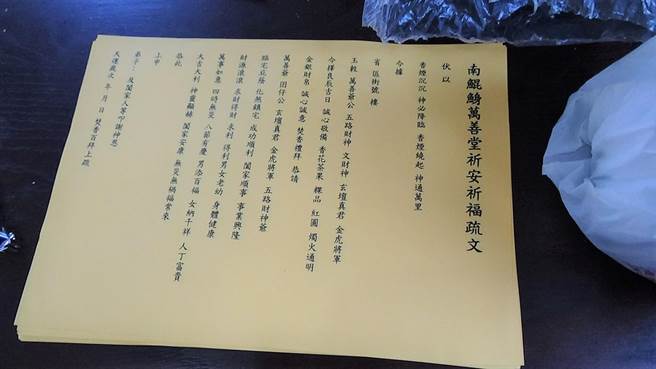 南鯤鯓萬善堂祈安祈福疏文
伏以
香煙沉沉 神必降臨 香煙繞起 神通萬里
今據
省 區街號 樓
玉敕 萬善爺公 五路財神 文財神 玄壇真君 金虎將軍
今擇良辰吉日 誠心敬備 香花茶果 粿品 紅圓 燭火通明
金銀財帛 誠心誠意 焚香禮拜 恭請
萬善爺 囝仔公 玄壇真君 金虎將軍 五路財神爺
臨宅庇蔭 化煞鎮宅 成功順利 闔家順事 事業興隆
財源滾滾 求財得財 求利 得利男女老幼 身體健康
萬事如意 四時無災 八節有慶 男添百福 女納千祥 人丁富貴
大吉大利 神靈顯赫 闔家安康 無災無禍福當來
恭此
上申
弟子： 及闔家人等叩謝神恩
天運歲次 年 月 日 焚香百拜上疏